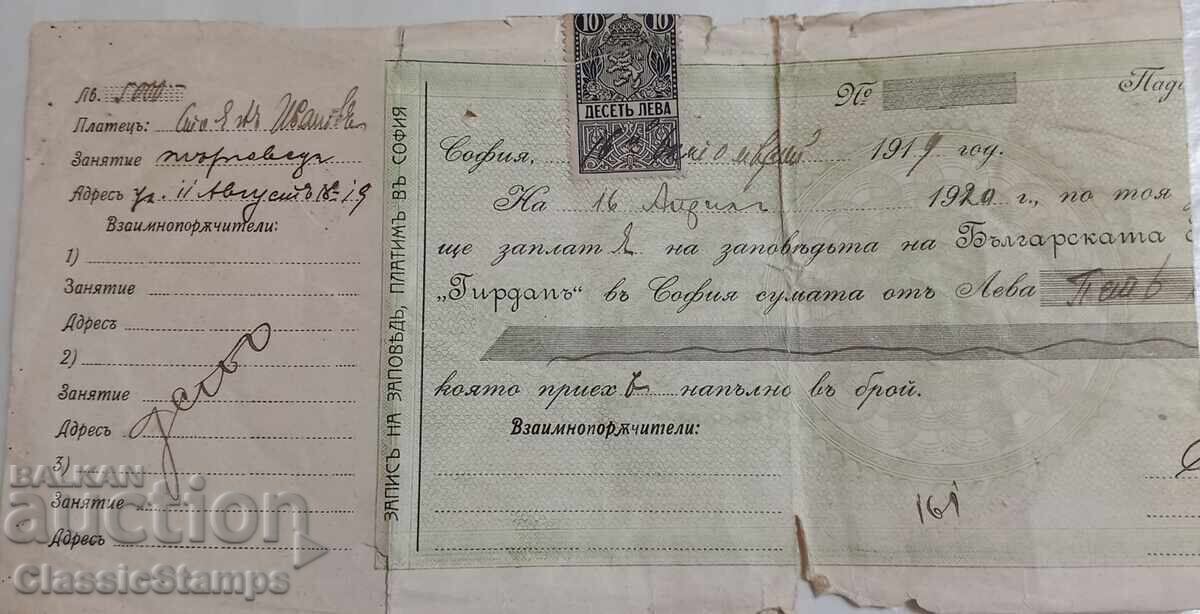 Лв. 5000
Платецъ: Стоянъ Ивановъ
Занятие търговецъ
Адресъ ул. 11 Августъ № 19
Взаимнопорѫчители:
1)
Занятие
Адресъ
2)
Занятие
Адресъ
3)
Занятие
Адресъ
ЗАПИСЪ НА ЗАПОВѢДЬ, ПЛАТИМЪ ВЪ СОФИЯ
10 10
ДЕСЕТЬ ЛЕВА
№ Пада
София, 1919 год.
На 16 Априлъ 1920 г., по тоя
ще заплатя на заповѣдьта на Българската
„Гирдапъ“ въ София сумата отъ Лева
която приехъ напълно въ брой.
Взаимнопорѫчители:
161
BALKAN
auction
ClassicStamps